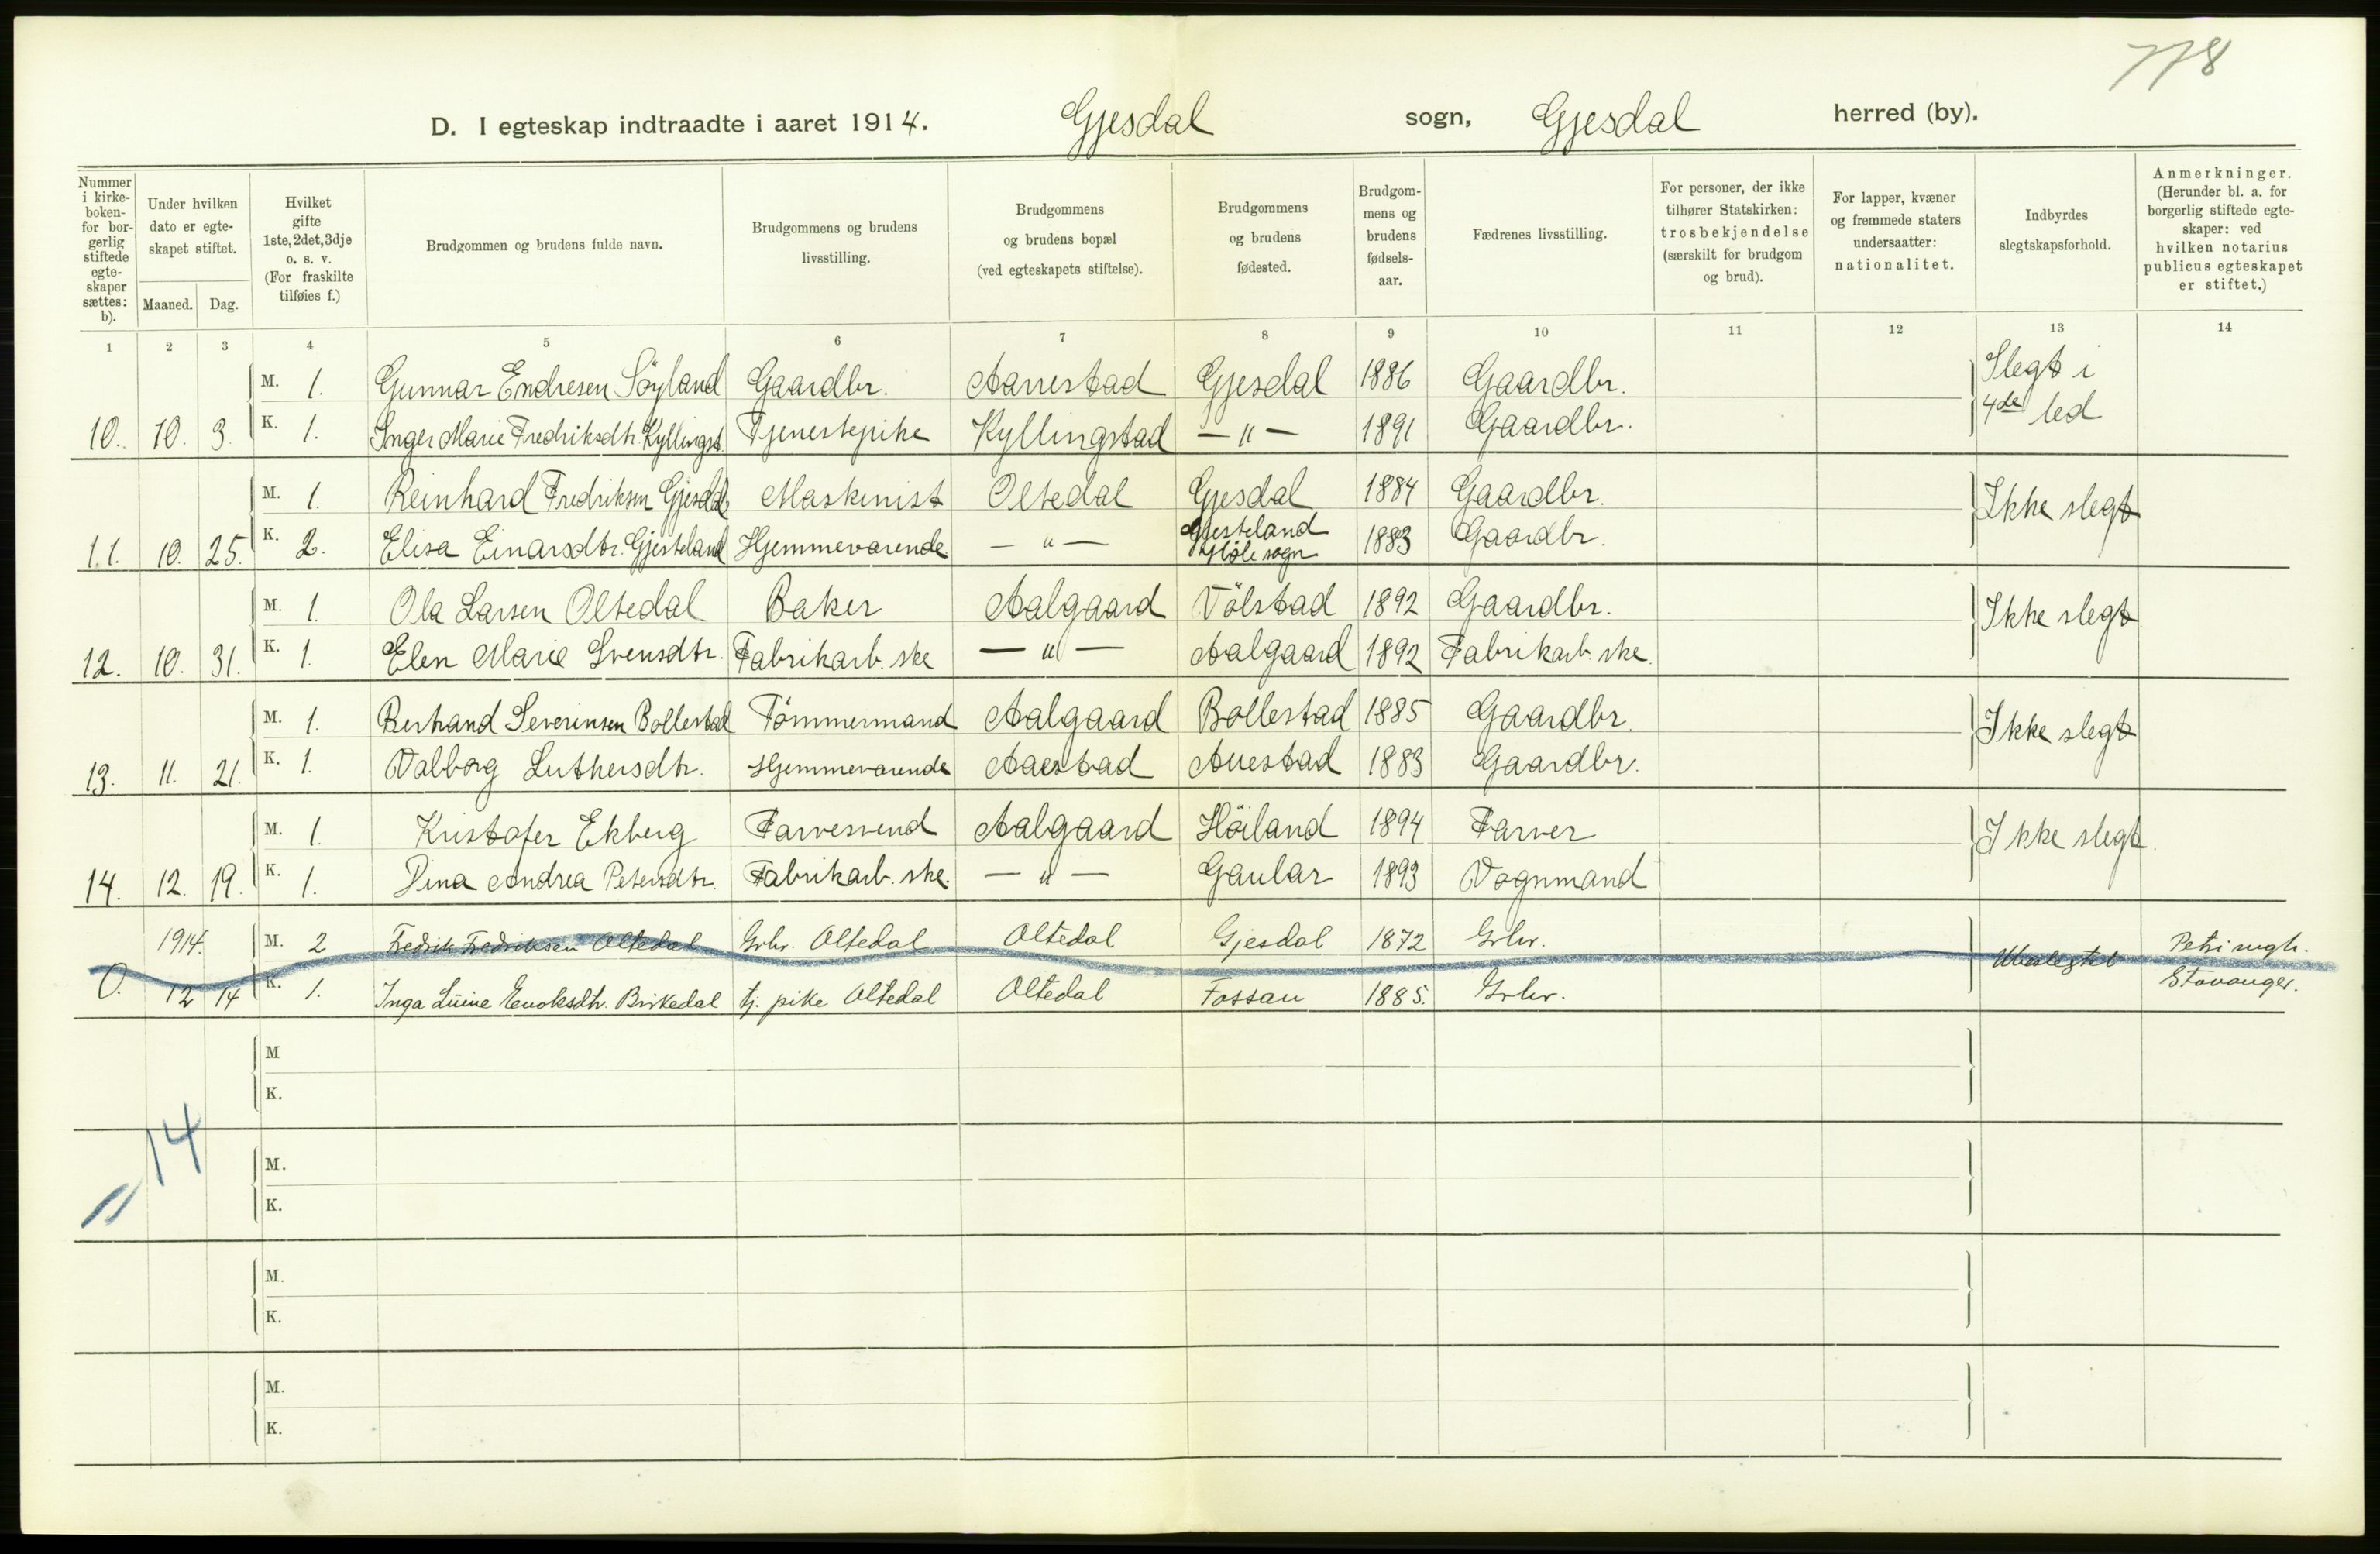 778
D. I egteskap indtraadte i aaret 1914. Gjesdal sogn, Gjesdal herred (by).
Nummer i kirke-boken- for bor-gerlig stiftede egte-skaper sættes: b).
Under hvilken dato er egte-skapet stiftet.
Maaned. Dag.
Hvilket gifte 1ste, 2det, 3dje o. s. v. (For fraskilte tilføies f.)
Brudgommen og brudens fulde navn.
Brudgommens og brudens livsstilling.
Brudgommens og brudens bopæl (ved egteskapets stiftelse).
Brudgommens og brudens fødested.
Brudgom-mens og brudens fødsels-aar.
Fædrenes livsstilling.
For personer, der ikke tilhører Statskirken: trosbekjendelse (særskilt for brudgom og brud).
For lapper, kvæner og fremmede staters undersaatter: nationalitet.
Indbyrdes slegtskapsforhold.
Anmerkninger. (Herunder bl. a. for borgerlig stiftede egte-skaper: ved hvilken notarius publicus egteskapet er stiftet.)
1 2 3 4 5 6 7 8 9 10 11 12 13 14
M. 1. Gunnar Endresen Söyland Gaardbr. Aarrestad Gjesdal 1886 Gaardbr. Slegt i
10. 10. 3. K. 1. Inger Marie Fredriksdtr. Kyllingst. Tjenestepike Kyllingstad — " — 1891 Gaardbr. 4de led
M. 1. Reinhard Fredriksen Gjesdal Maskinist Oltedal Gjesdal 1884 Gaardbr. Ikke slegt
11. 10. 25. K. 2. Elisa Einarsdtr. Gjesteland Hjemmeværende — " — Gjesteland Høle sogn 1883 Gaardbr.
M. 1. Ola Larsen Oltedal Baker Aalgaard Völstad 1892 Gaardbr. Ikke slegt
12. 10. 31. K. 1. Elen Marie Svensdtr. Fabrikarb. ske — " — Aalgaard 1892 Fabrikarb. ske.
M. 1. Bertrand Severinsen Bollestad Tömmermand Aalgaard Bollestad 1885 Gaardbr. Ikke slegt
13. 11. 21. K. 1. Valborg Luthersdtr. Hjemmeværende Auestad Auestad 1883 Gaardbr.
M. 1. Kristofer Ekberg Farvesvend Aalgaard Höiland 1894 Farver Ikke slegt
14. 12. 19. K. 1. Dina Andrea Petersdtr. Fabrikarb. ske. — " — Gaular 1893 Vognmand
1914. M. 2 Fredrik Fredriksen Oltedal Grbr. Oltedal Oltedal Gjesdal 1872 Grbr. Ubeslegtet Petri mgh.
0. 12 14 K. 1. Inga Enoksdtr. Birkedal tj. pike Oltedal Oltedal Fossan 1885. Grbr. Stavanger.
M
K.
14
M.
K.
M.
K.
M.
K.